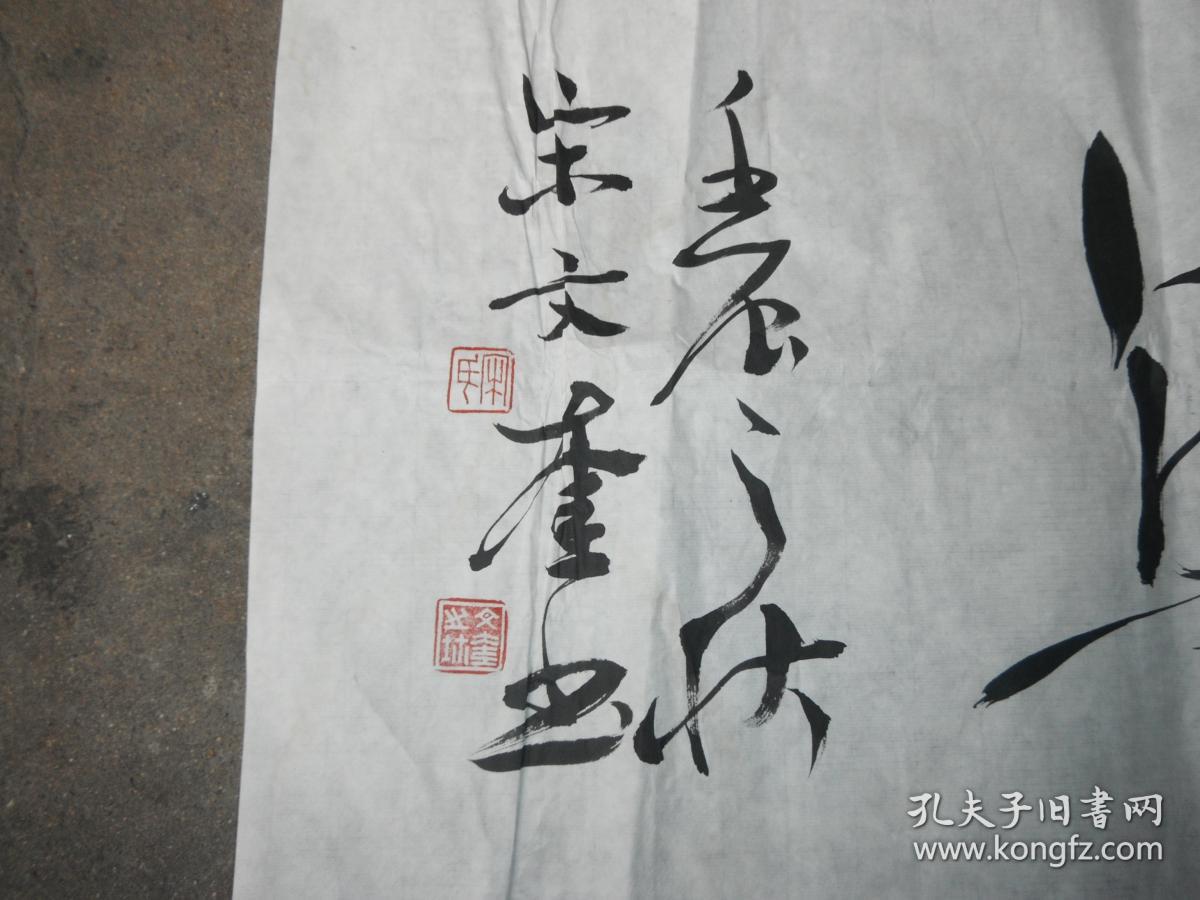 壬辰之秋
宋文奎书
宋氏
文奎之珎
孔夫子旧書网
www.kongfz.com